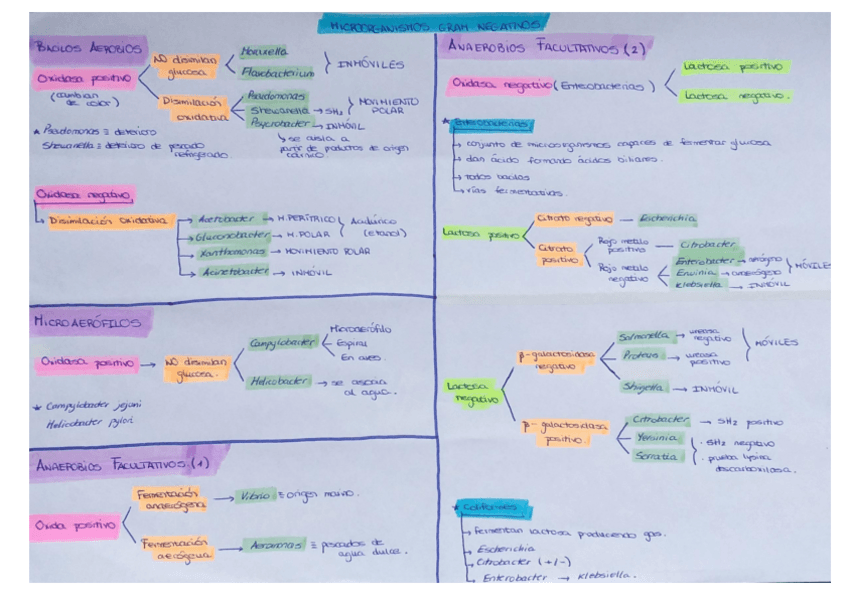 MICROORGANISMOS GRAM NEGATIVOS
BACILOS AEROBIOS
Oxidasa positivo
(cambian de color)
NO disimilan glucosa
Moraxella
Flavobacterium
INMÓVILES
Disimilación oxidativa
Pseudomonas
Shewanella → SH₂
MOVIMIENTO POLAR
Psycrobacter → INMÓVIL
↳ se aisla a partir de productos de origen cárnico.
★ Pseudomonas ≡ deterioro
Shewanella ≡ deterioro de pescado refrigerado.
Oxidasa negativo
Disimilación oxidativa
Acetobacter → M. PERÍTRICO
Gluconobacter → M. POLAR
Acidúrico (etanol)
Xanthomonas → MOVIMIENTO POLAR
Acinetobacter → INMÓVIL
MICROAERÓFILOS
Oxidasa positivo → NO disimilan glucosa.
Campylobacter
Microaerófilo
Espiral
En aves.
Helicobacter → se asocia al agua.
★ Campylobacter jejuni
Helicobacter pylori
ANAEROBIOS FACULTATIVOS (1)
Oxida positivo
Fermentación anaerógena → Vibrio ≡ origen marino.
Fermentación aerógena → Aeromonas ≡ pescados de agua dulce.
ANAEROBIOS FACULTATIVOS (2)
Oxidasa negativo (Enterobacterias)
Lactosa positivo
Lactosa negativo.
★ Enterobacterias
→ conjunto de microorganismos capaces de fermentar glucosa
→ dan ácido formando ácidos biliares.
→ todos bacilos
→ vías fermentativas.
Lactosa positivo
Citrato negativo — Escherichia
Citrato positivo
Rojo metilo positivo — Citrobacter
Rojo metilo negativo
Enterobacter → aerógeno
Erwinia → anaerógeno
MÓVILES
Klebsiella → INMÓVIL
Lactosa negativo
β-galactosidasa negativo
Salmonella → ureasa negativo
Proteus → ureasa positivo
MÓVILES
Shigella → INMÓVIL
β-galactosidasa positivo.
Citrobacter → SH₂ positivo
Yersinia
Serratia
· SH₂ negativo
· prueba lysina descarboxilasa.
★ Coliformes
→ Fermentan lactosa produciendo gas.
→ Escherichia
→ Citrobacter (+/-)
→ Enterobacter → Klebsiella.